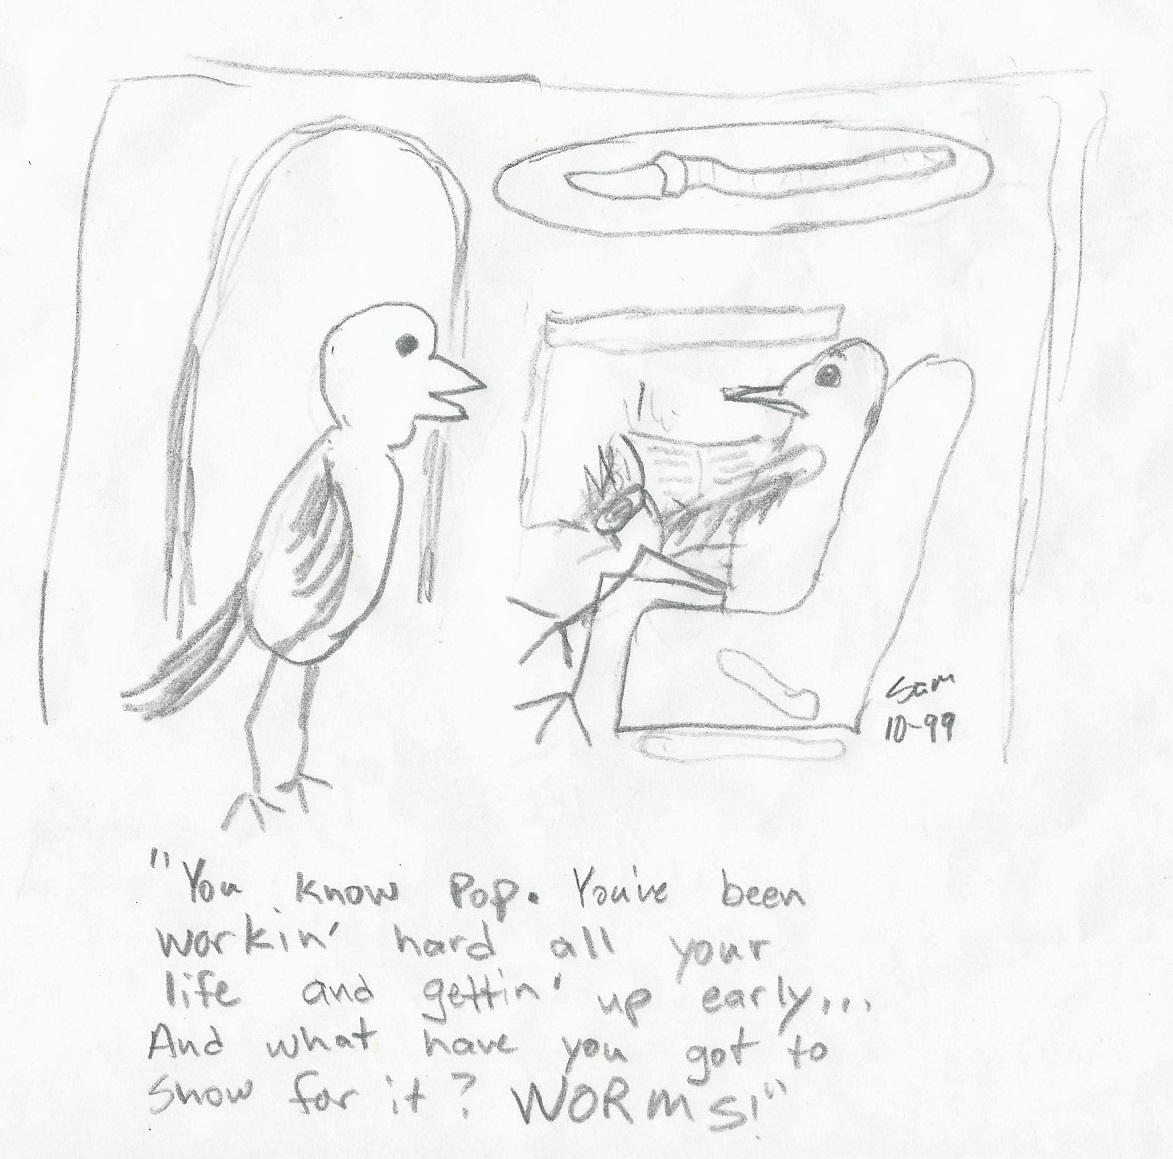 Sam
10-99
"You know Pop. You've been
workin' hard all your
life and gettin' up early...
And what have you got to
show for it? WORMS!"